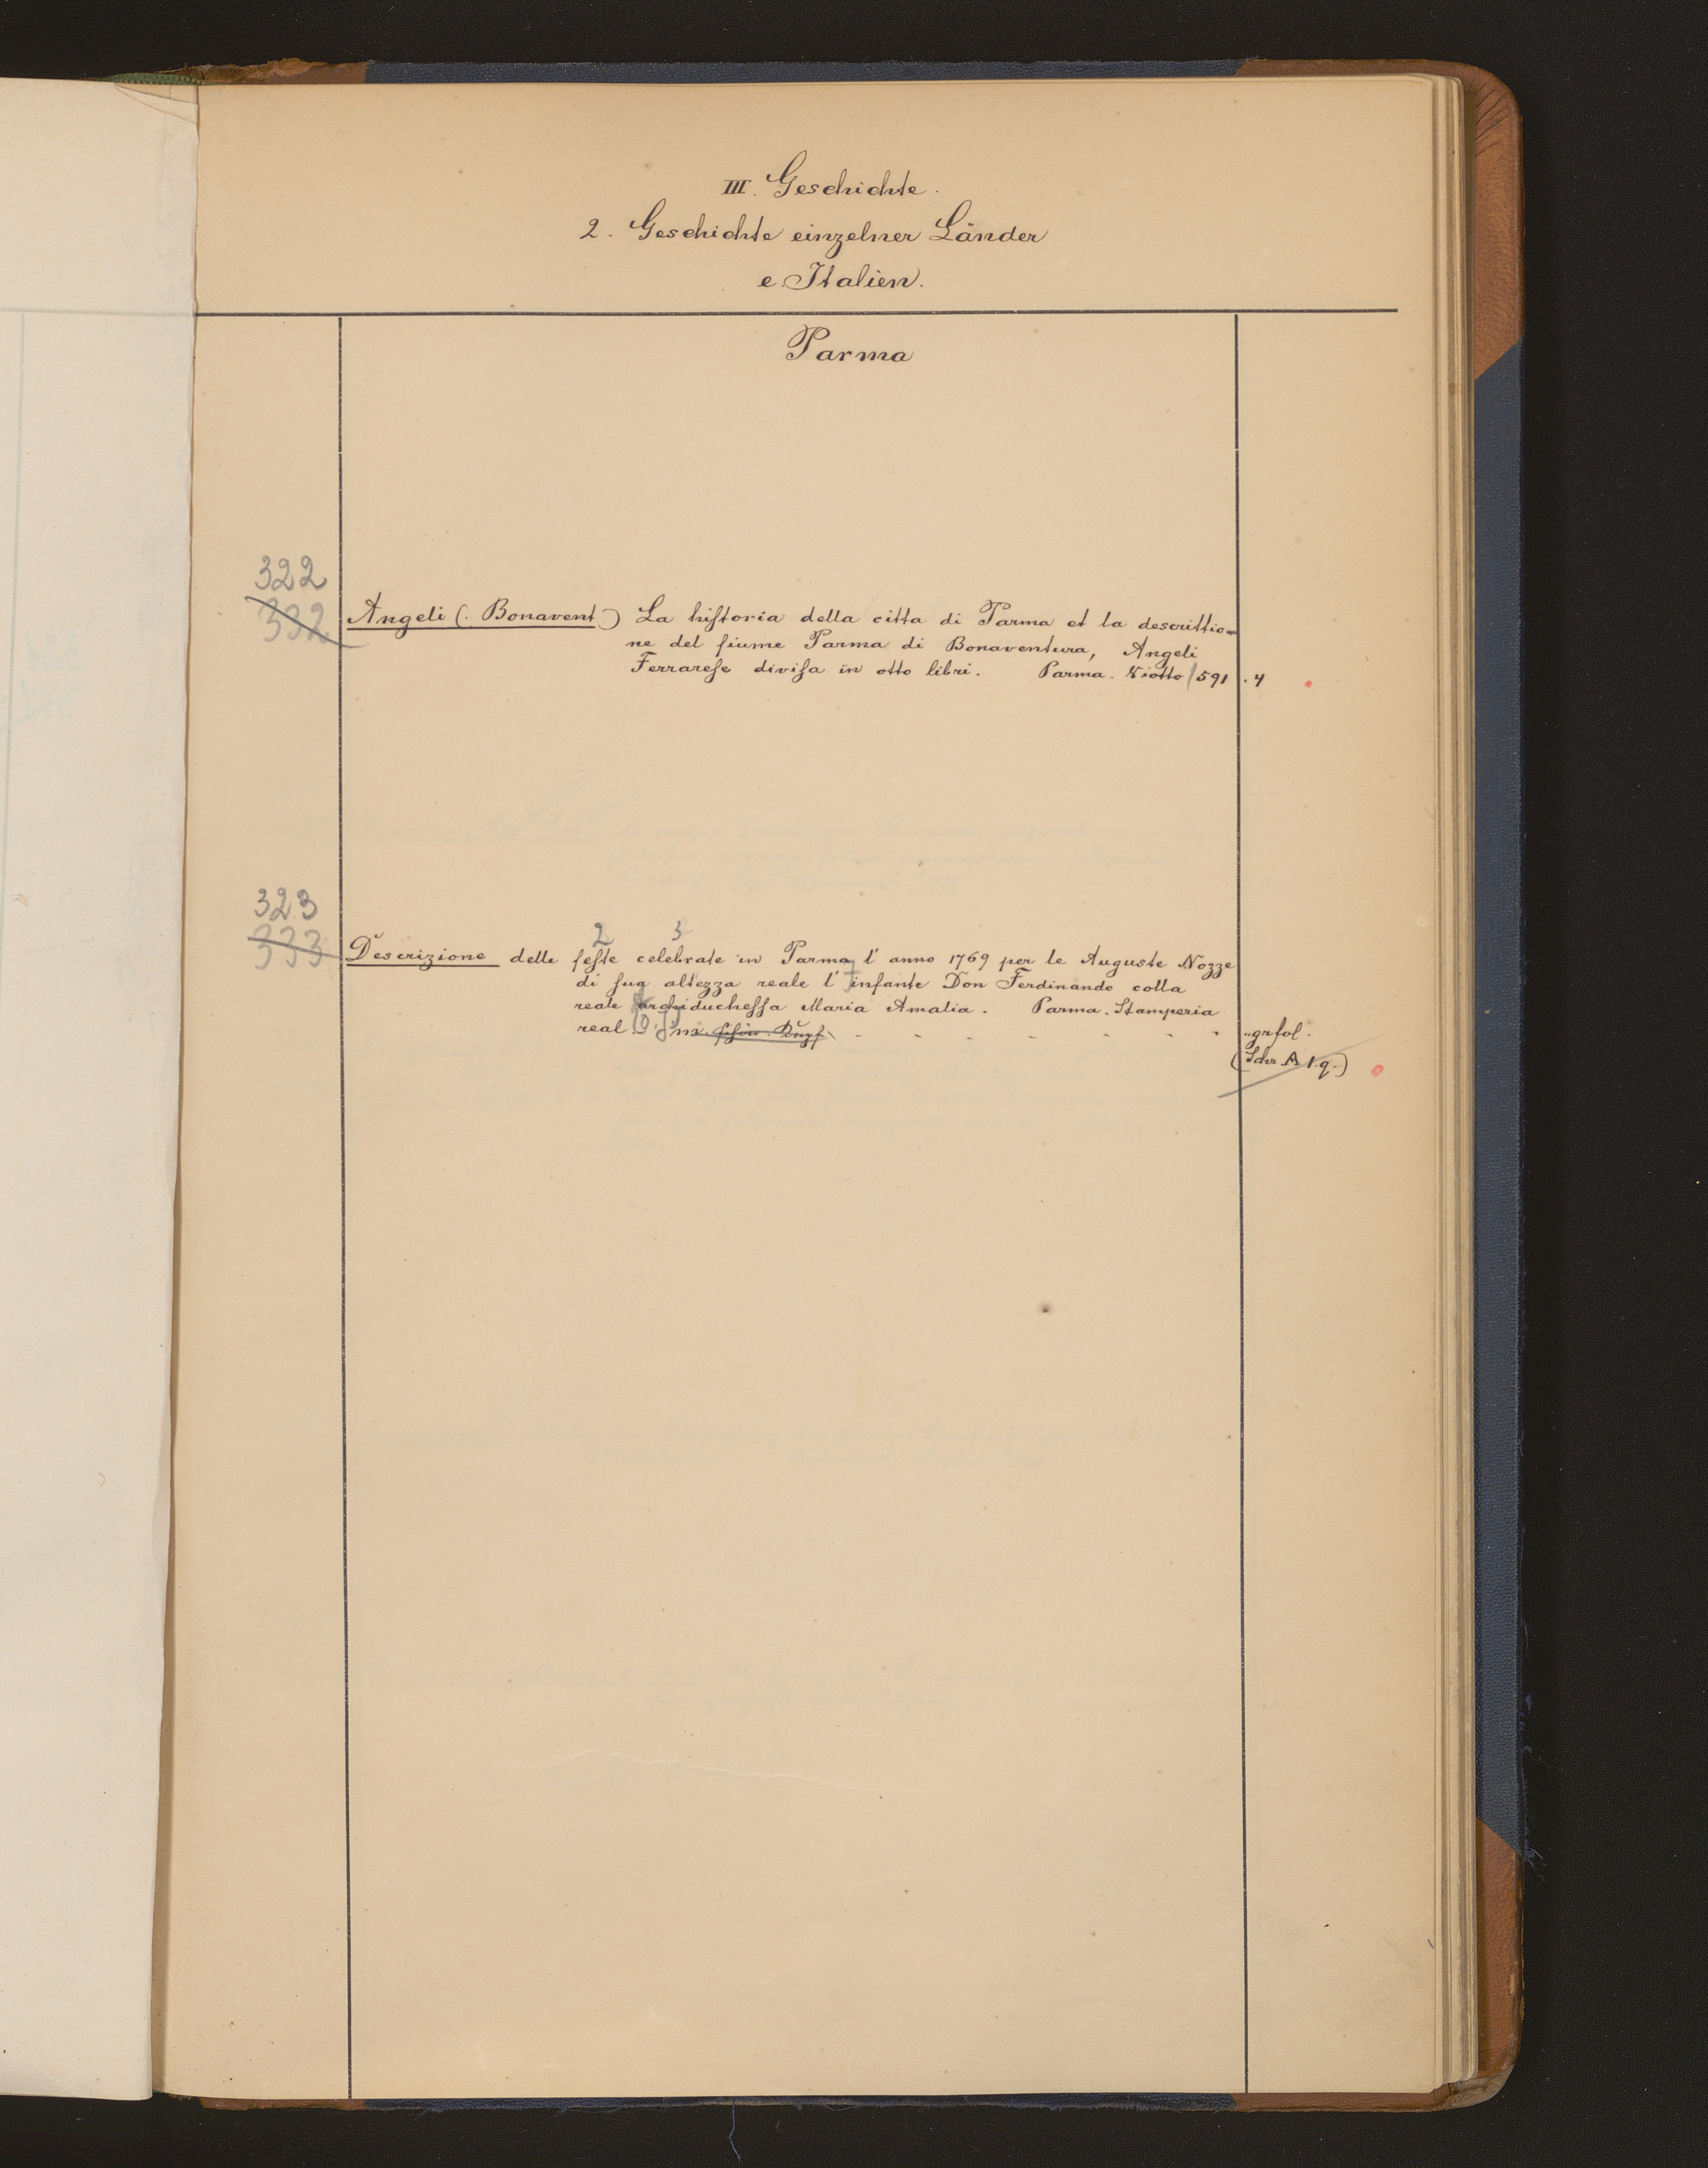 III. Geschichte.
2. Geschichte einzelner Länder
e Italien.
Parma
322
332
Angeli (. Bonavent.) La hiſtoria della citta di Parma et la descrittio=
ne del fiume Parma di Bonaventura, Angeli
Ferrareſe diviſa in otto libri. Parma. Viotto 1591 . 4
323
333
2 3
Descrizione delle feſte celebrate in Parma l' anno 1769 per le Auguste Nozze
di ſua altezza reale l' infante Don Ferdinando colla
reale archiducheſſa Maria Amalia. Parma. Stamperia
real. - - - - - - - „grfol.
(Schr. A 1.q.)